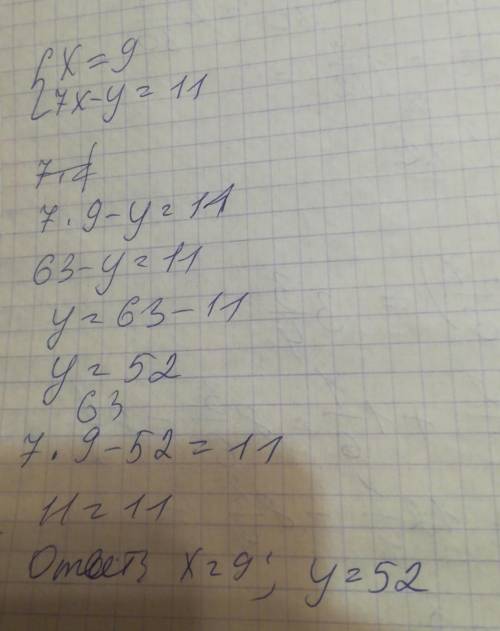 { x = 9
{ 7x - y = 11
7 · 9 - y = 11
63 - y = 11
y = 63 - 11
y = 52
63
7 · 9 - 52 = 11
11 = 11
Ответ x = 9; y = 52